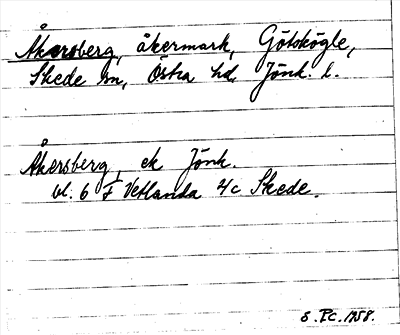 Åkersberg, åkermark, Götskögle,
Skede sn, Östra hd, Jönk. l.
Åkersberg, ek Jönk.
bl. 6 F Vetlanda 4c Skede.
S. Pc. 1958.